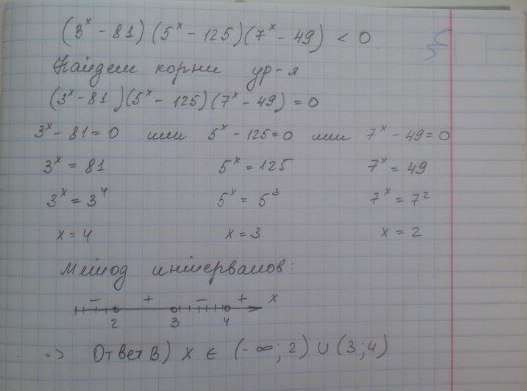 (3ˣ - 81)(5ˣ - 125)(7ˣ - 49) < 0
Найдем корни ур-я
(3ˣ - 81)(5ˣ - 125)(7ˣ - 49) = 0
3ˣ - 81 = 0 или 5ˣ - 125 = 0 или 7ˣ - 49 = 0
3ˣ = 81 5ˣ = 125 7ˣ = 49
3ˣ = 3⁴ 5ˣ = 5³ 7ˣ = 7²
x = 4 x = 3 x = 2
Метод интервалов:
- + - + x
2 3 4
=> Ответ В) x ∈ (-∞; 2) ∪ (3; 4)